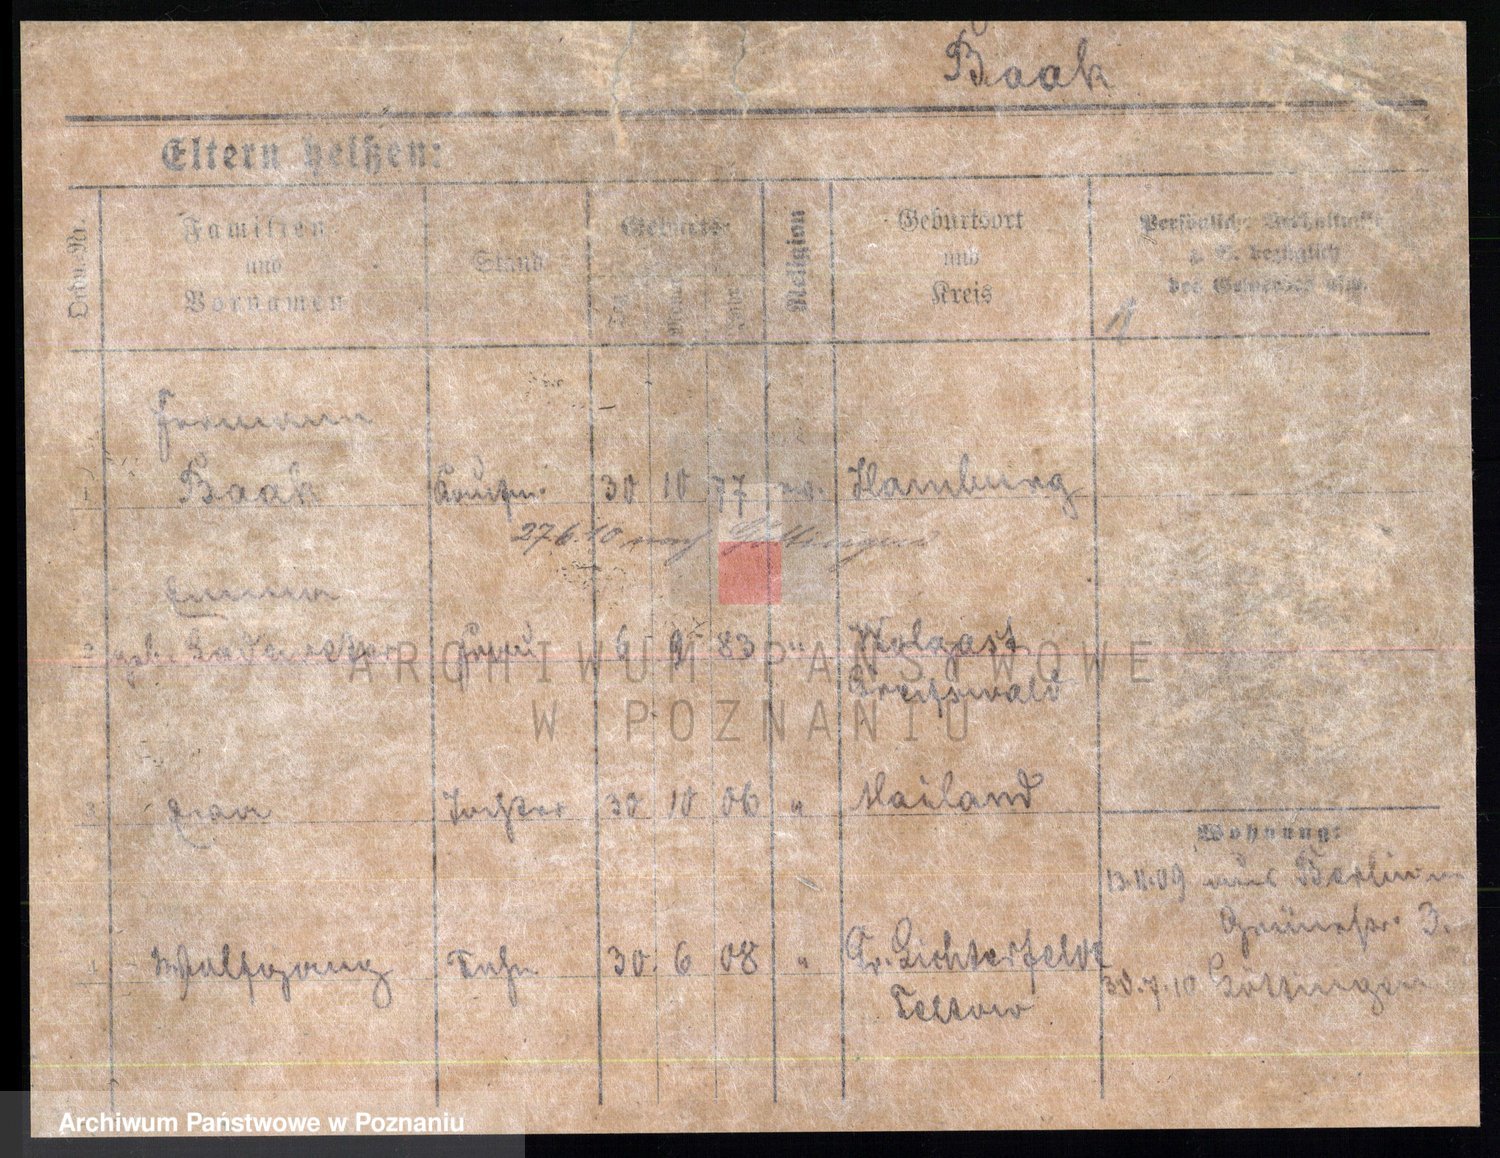 Baak
Eltern heißen:
Ordn.-Nr.
Familien-
und
Vornamen
Stand
Geburts-
Tag
Monat
Jahr
Religion
Geburtsort
und
Kreis
Persönliche Verhältnisse
z. B. bezüglich
des Gewerbes usw.
Hermann
1 Baak Kaufm. 30 10 77 ev. Hamburg
27.6.10 nach Göttingen
Emma
2 geb. Frau 6 9 83 " Wolgast
Greifswald
3 Tochter 30 10 06 " Mailand
Wohnung:
13.11.09 aus Berlin
Grünestr. 3.
4 Wolfgang Sohn 30. 6 08 " Gr. Lichterfelde
30.7.10 Göttingen
Teltow
ARCHIWUM PAŃSTWOWE
W POZNANIU
Archiwum Państwowe w Poznaniu